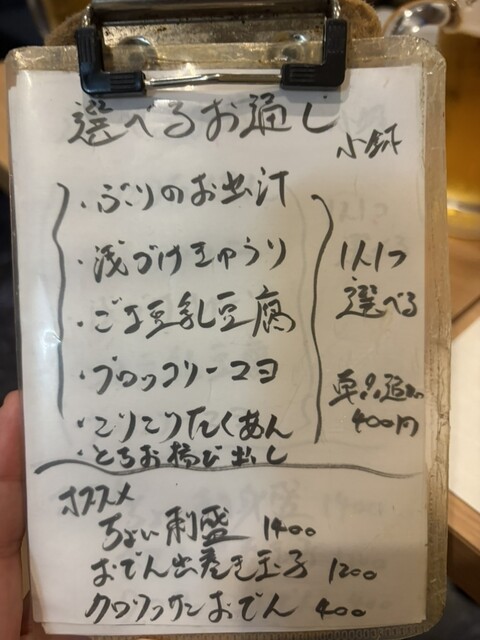 選べるお通し
小鉢
・ぶりのお出汁
・浅づけきゅうり
・ごま豆乳豆腐
・ブロッコリーマヨ
・こりこりたくあん
・とろお揚び出し
1人1つ
選べる
単品追加
400円
オススメ
ちょい刺盛 1400
おでん出巻き玉子 1200
クロワッサンおでん 400